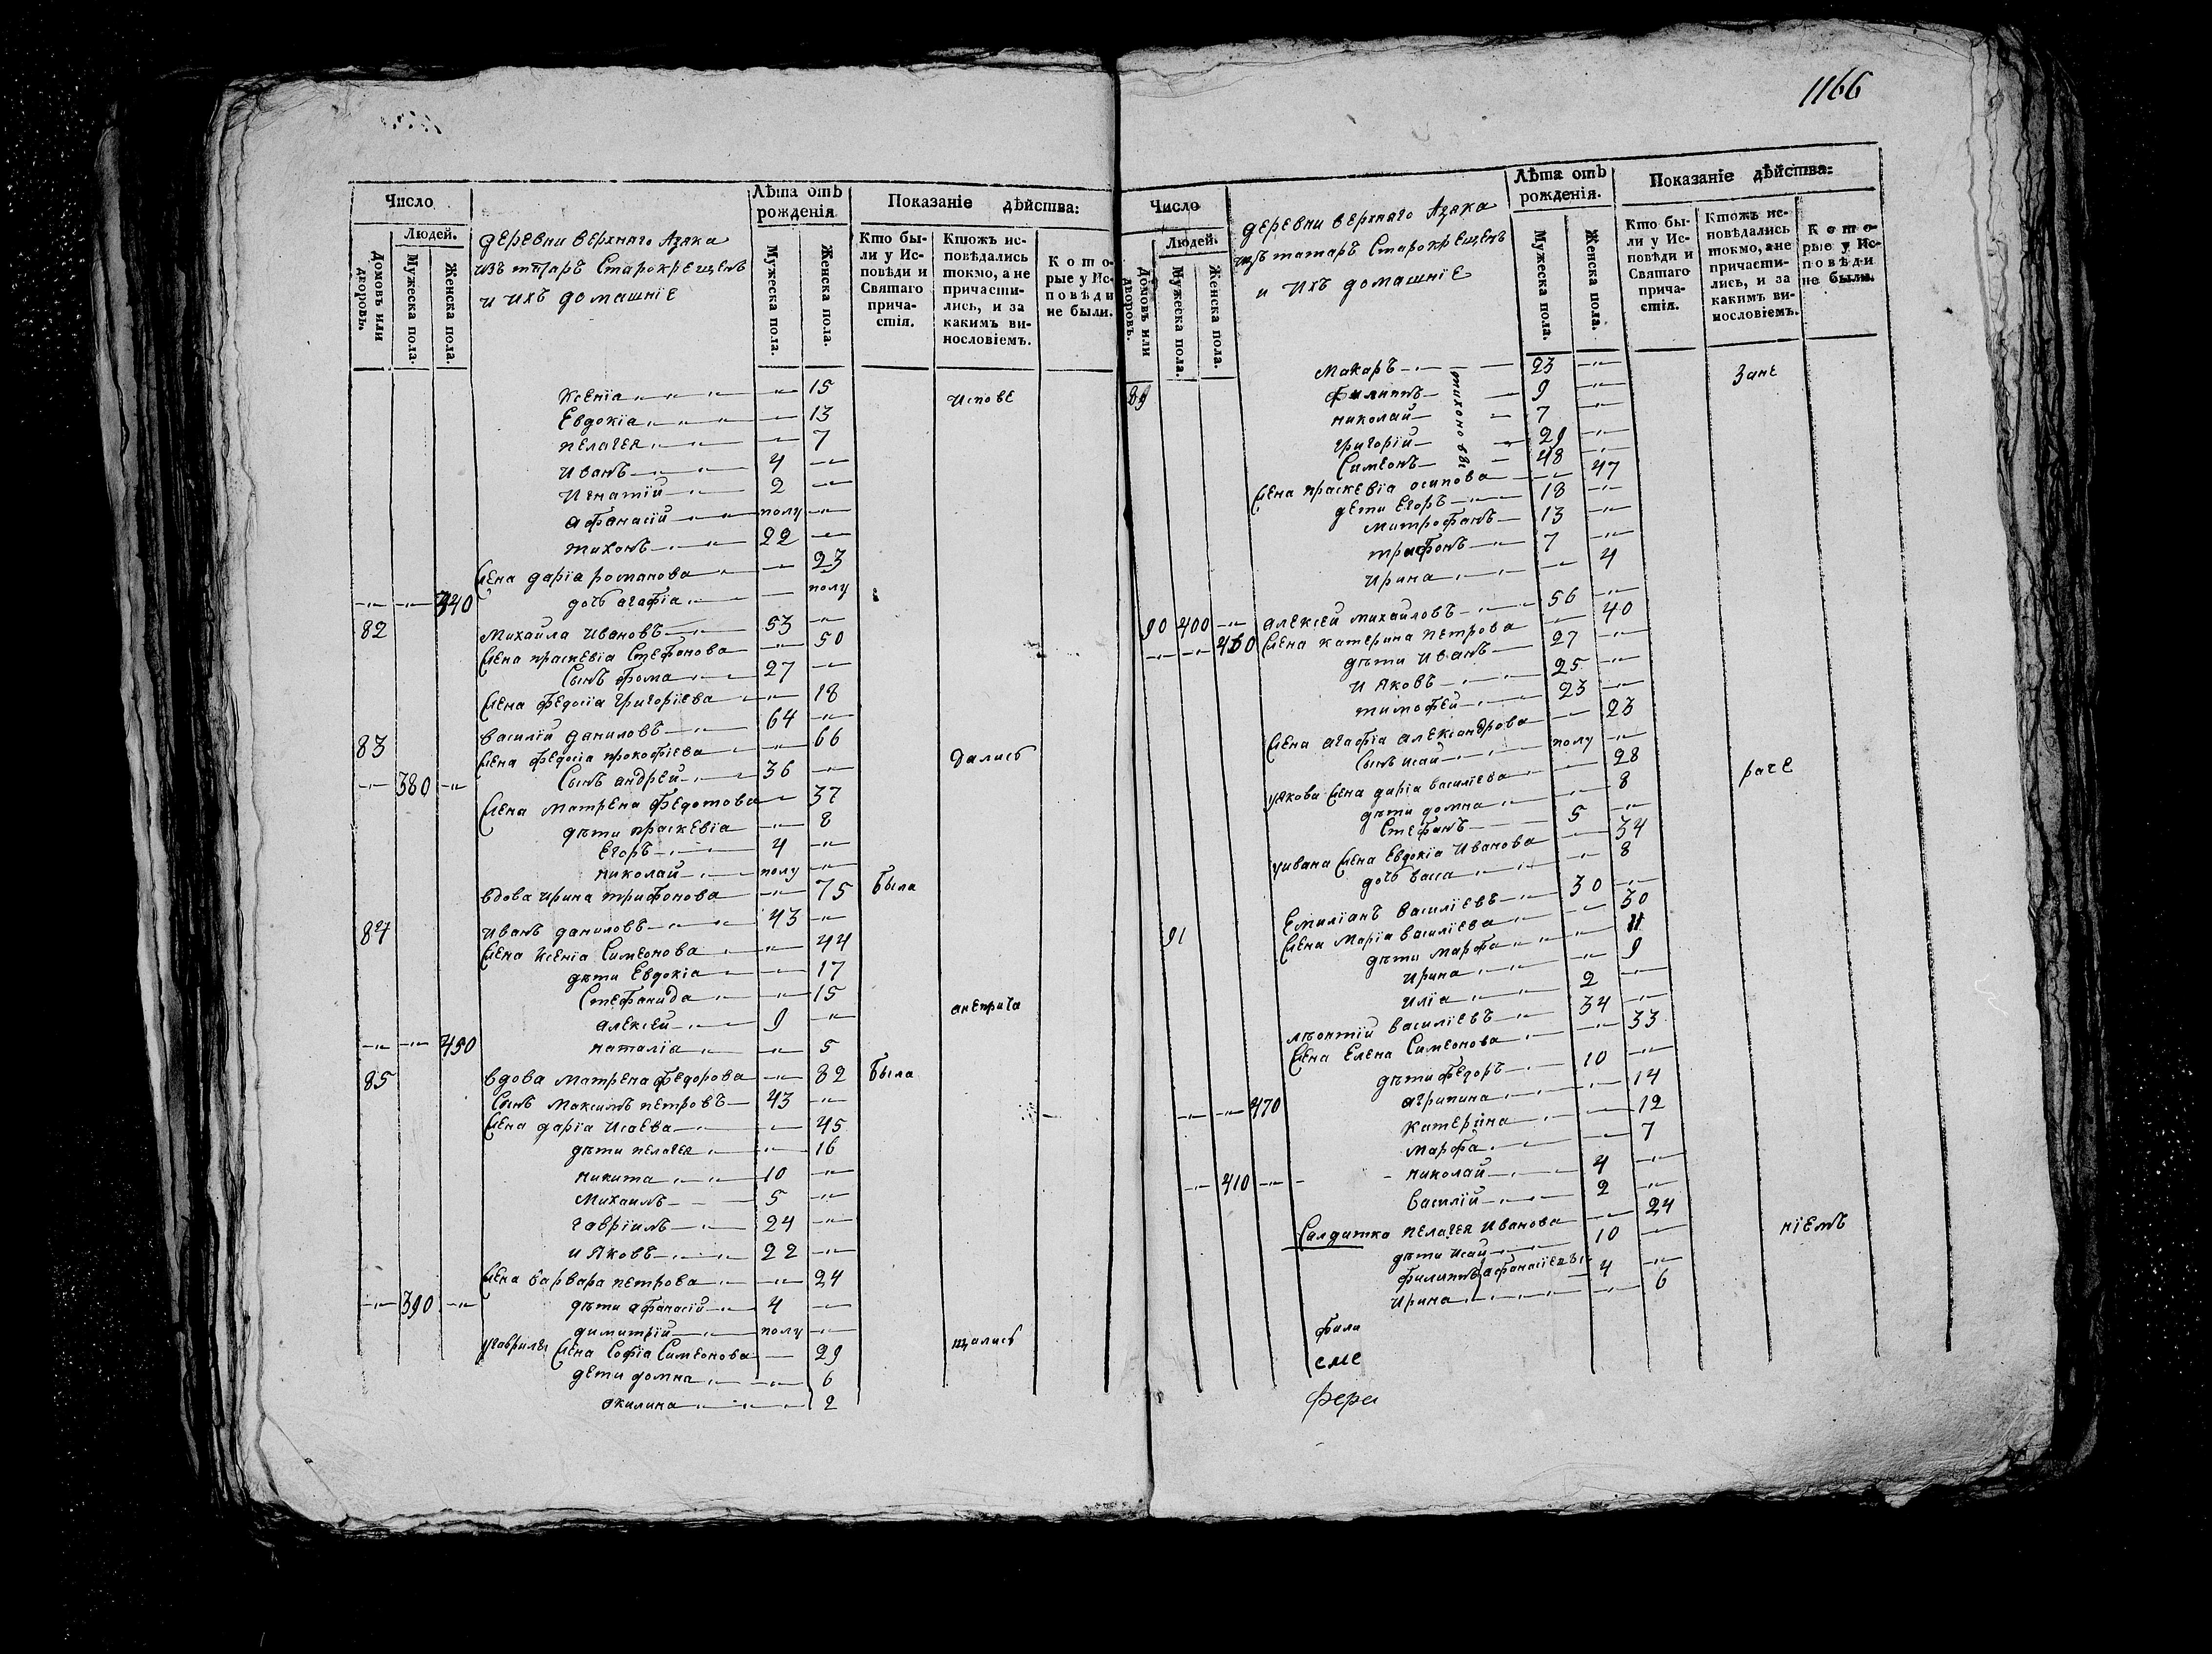 1166
Число
Людей.
Домовъ или дворовъ.
Мужеска пола.
Женска пола.
деревни верхняго Азяка
изъ татаръ Старокрещенъ
и ихъ домашніе
Лѣта отъ рожденія.
Мужеска пола.
Женска пола.
Показаніе дѣйства:
Кто были у Исповѣди и Святаго причастія.
Ктожъ исповѣдались токмо, а не причастились, и за какимъ винословіемъ.
Которые у Исповѣди не были.
Ксенія 15 Испове
Евдокія 13
пелагея 7
Иванъ 4
Игнатій 2
афанасій полу
тихонъ 22
жена дарія романова 23
440 дочь агафія полу
82 Михайла Ивановъ 53
жена праскевія Стефанова 50
Сынъ фома 27
жена федосіа григоріева 18
83 василій даниловъ 64
жена федосіа прокофіева 66 дались
380 Сынъ андрей 36
жена матрена федотова 37
дѣти праскевія 8
Егоръ 4
николай полу
вдова ирина трифонова 75 была
84 Иванъ даниловъ 43
жена Ксенія Симеонова 44
дѣти Евдокія 17
Стефанида 15 анеприча
алексей 9
450 наталія 5
85 вдова матрена федорова 82 была
Сынъ максимъ петровъ 43
жена дарія Исаева 45
дѣти пелагея 16
никита 10
михаилъ 5
гавріилъ 24
и Яковъ 22
жена варвара петрова 24
390 дѣти афанасій 4
димитрій полу
угаврилы жена Софія Симеонова 29 щались
дети домна 6
акилина 2
Число
Людей.
Домовъ или дворовъ.
Мужеска пола.
Женска пола.
деревни верхняго Азяка
изъ татаръ Старокрещенъ
и ихъ домашніе
Лѣта отъ рожденія.
Мужеска пола.
Женска пола.
Показаніе дѣйства:
Кто были у Исповѣди и Святаго причастія.
Ктожъ исповѣдались токмо, а не причастились, и за какимъ винословіемъ.
Которые у Исповѣди не были.
макаръ 23 Зане
89 филиппъ 9
николай 7
тихоновы
григорій 29
Симеонъ 48
жена праскевія осипова 47
дети Егоръ 18
митрофанъ 13
трифонъ 7
ирина 4
90 400 алексей михайловъ 56
460 жена катерина петрова 40
дѣти Иванъ 27
и Яковъ 25
тимофей 23
жена агафіа александрова 23
Сынъ исай полу
уякова жена дарія васильева 28 раче
дѣти домна 8
Стефанъ 5
уивана жена Евдокіа Иванова 34
дочь васа 8
91 Емиліанъ василіевъ 30
жена марія василіева 30
дѣти марфа 11
ирина 9
иліа 2
леонтій василіевъ 34
жена Елена Симеонова 33
дѣти федоръ 10
470 агрипина 14
катерина 12
марфа 7
410 николай 4
василій 2
Салдатка пелагея Иванова 24 ніемъ
дѣти исай 10
филиппъ афанасіевы 4
ирина 6
фили
сме
фера